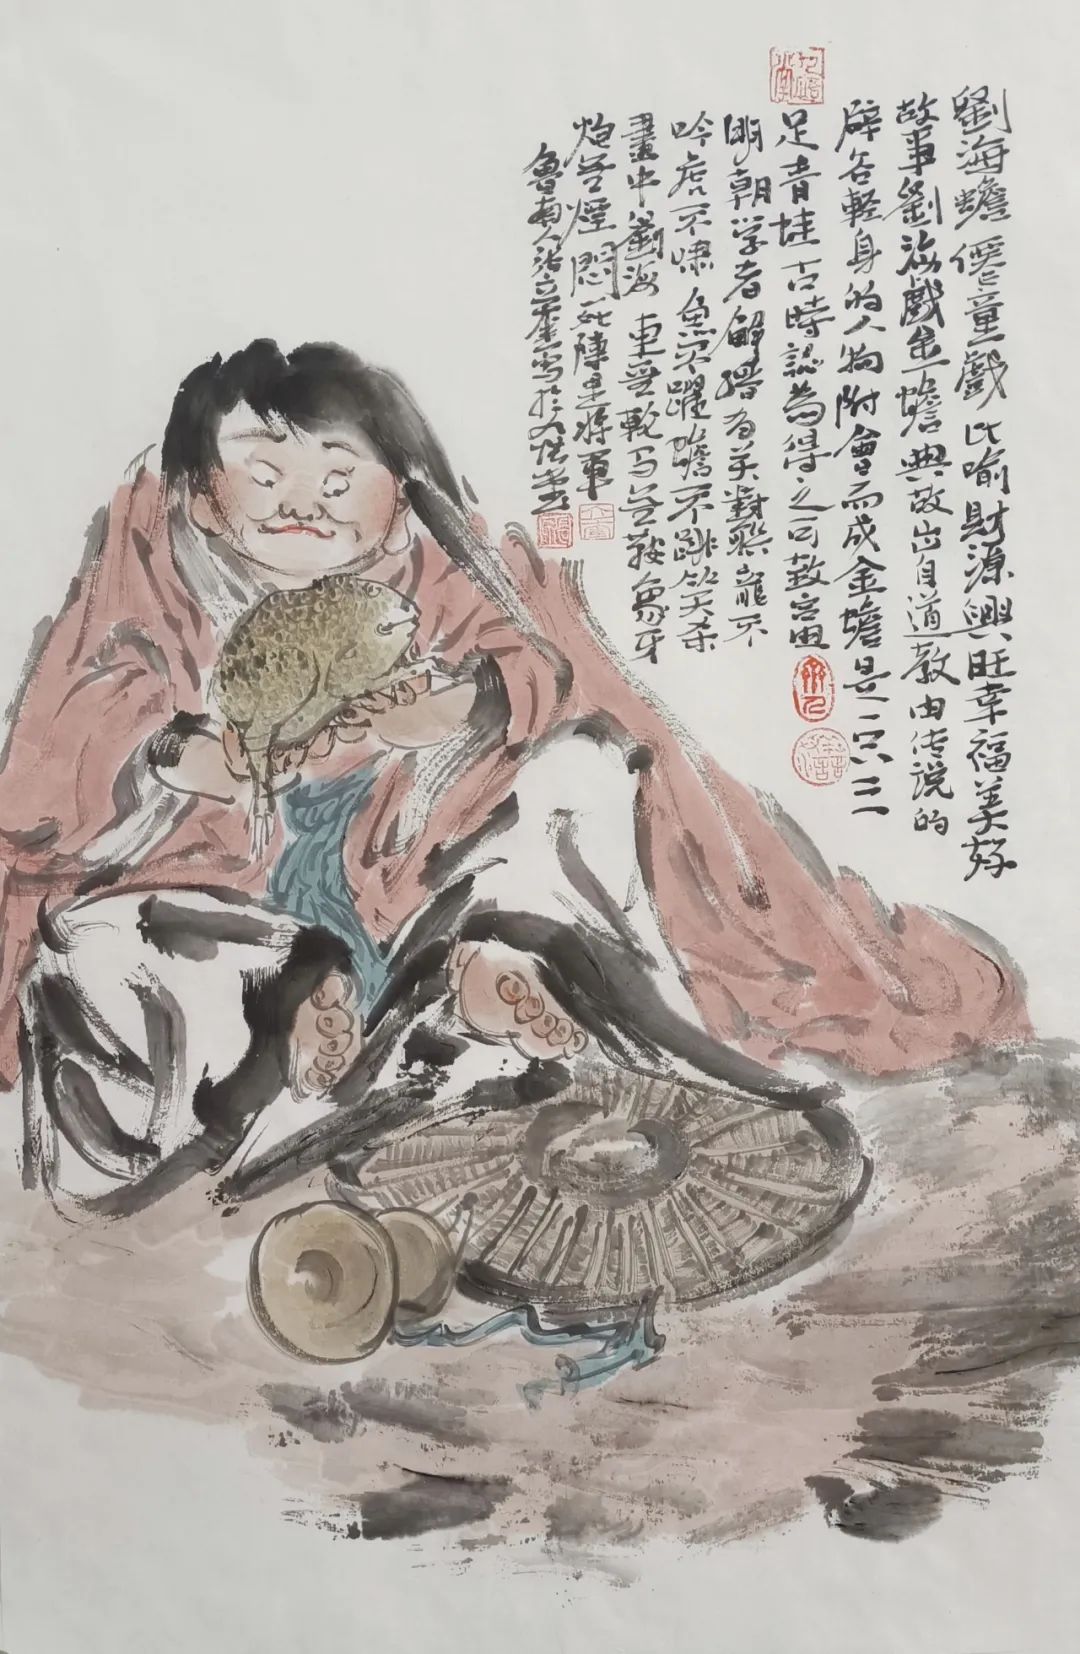 劉海蟾童戲比喻財源興旺幸福美好
故事劉海戲金蟾典故出自道教由传说的
辟谷輕身的人物附會而成金蟾是一只三
足青蛙古時認為得之可致富
明朝学者解縉有关對聯龍不
吟虎不嘯魚不躍蟾不跳笑杀
畫中劉海車無马無鞍象牙
炮無煙悶死陣里將軍
魯南人張立寫於